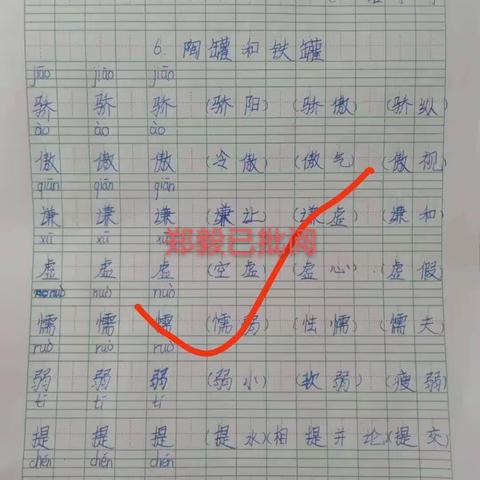 6. 陶罐和铁罐
jiāo jiāo jiāo
骄 骄 骄 (骄阳) (骄傲) (骄纵)
ào ào ào
傲 傲 傲 (冷傲) (傲气) (傲视)
qiān qiān qiān
谦 谦 谦 (谦让) (谦虚) (谦和)
xū xū xū
虚 虚 虚 (空虚) (虚心) (虚假)
郑毅已批阅
nuò nuò nuò
懦 懦 懦 (懦弱) (性懦) (懦夫)
ruò ruò ruò
弱 弱 弱 (弱小) (软弱) (瘦弱)
tí tí tí
提 提 提 (提水) (相提并论) (提交)
chén chén chén